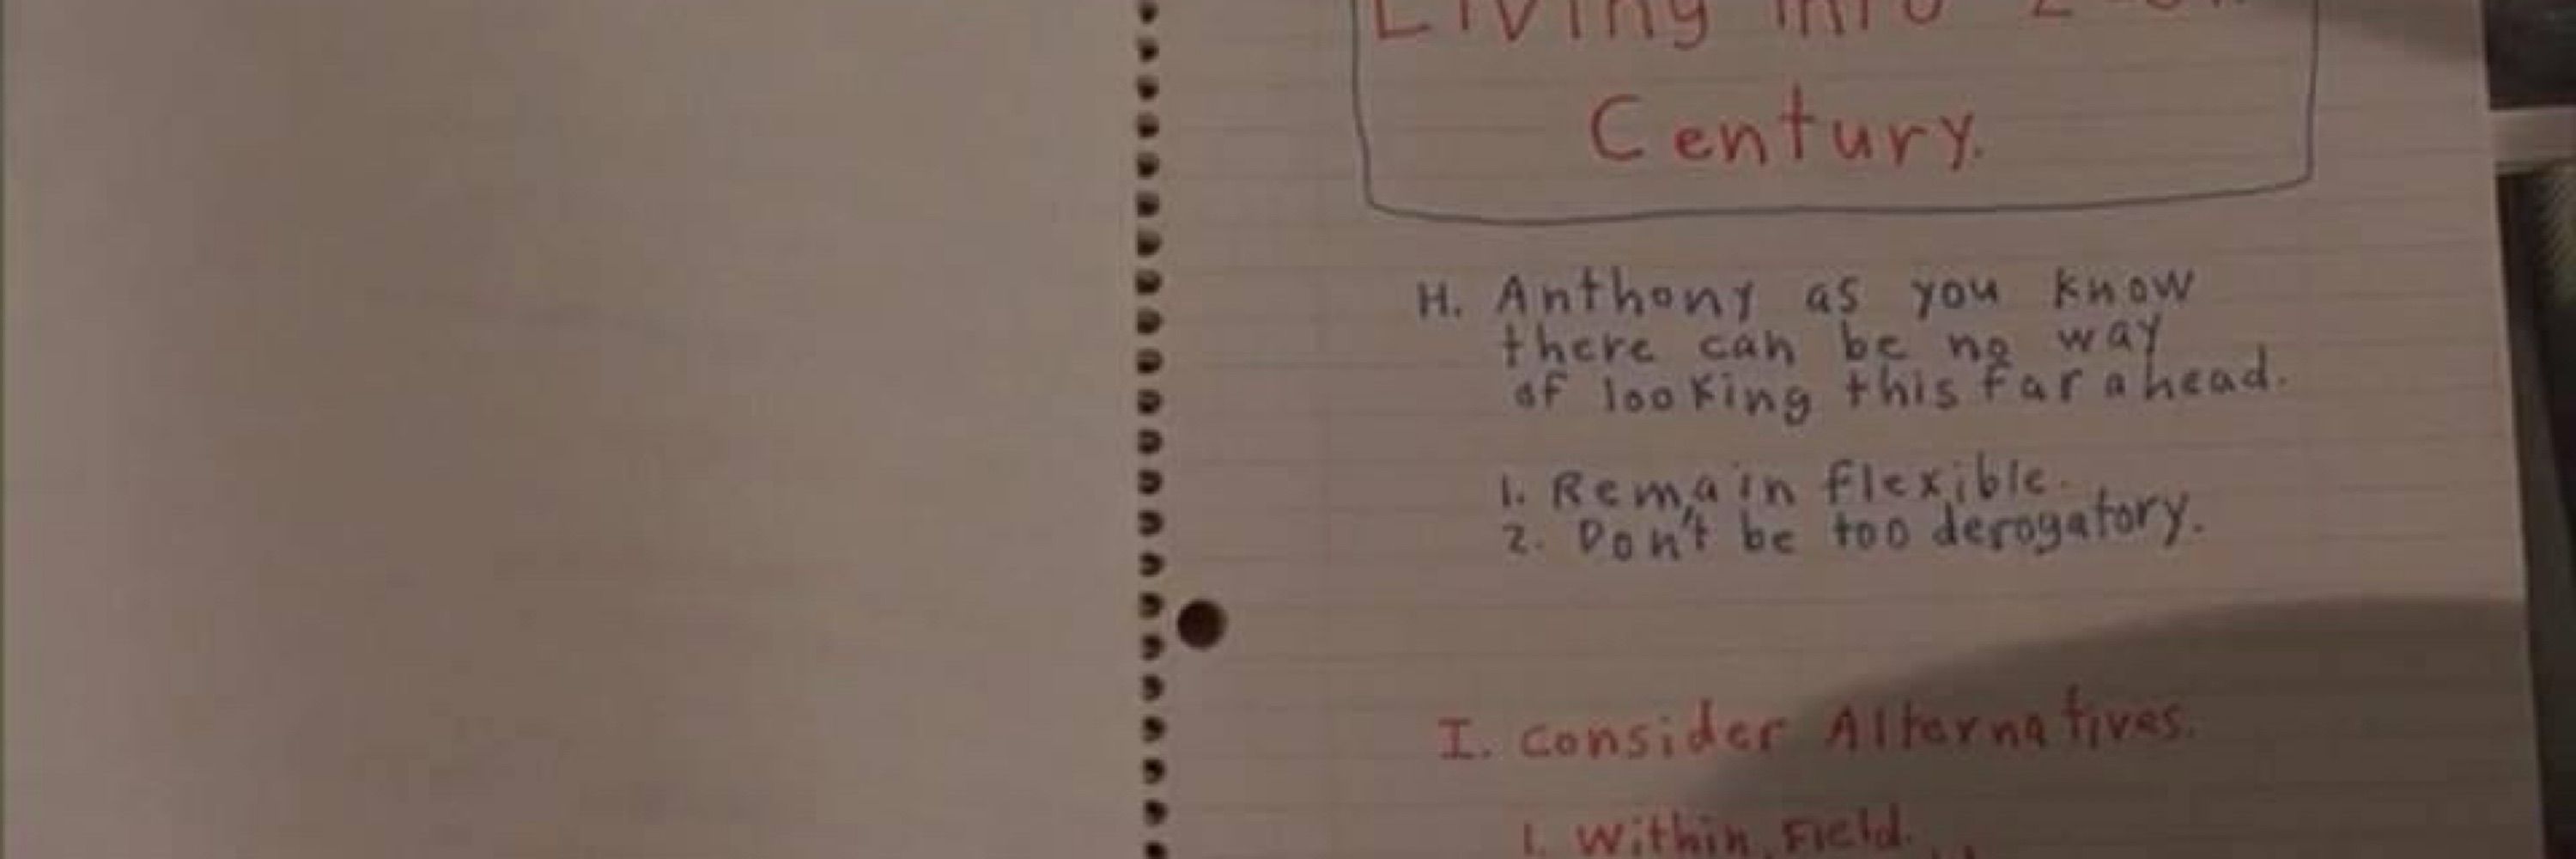 Living into
Century.
H. Anthony as you know
there can be no way
of looking this far ahead.
1. Remain flexible.
2. Don't be too derogatory.
I. Consider Alternatives.
1. Within Field.